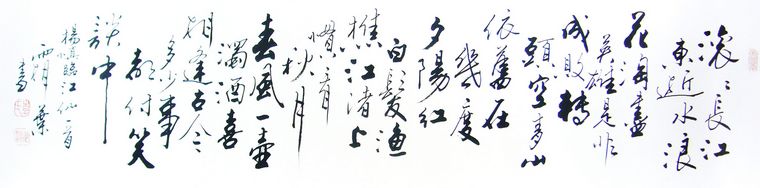 滚〻長江
東逝水浪
花淘盡
英雄是非
成敗轉
頭空青山
依舊在
幾度
夕陽紅
白髮漁
樵江渚上
慣看
秋月
春風一壺
濁酒喜
相逢古今
多少事
都付笑
談中
楊慎臨江仙一首
霜葉
書